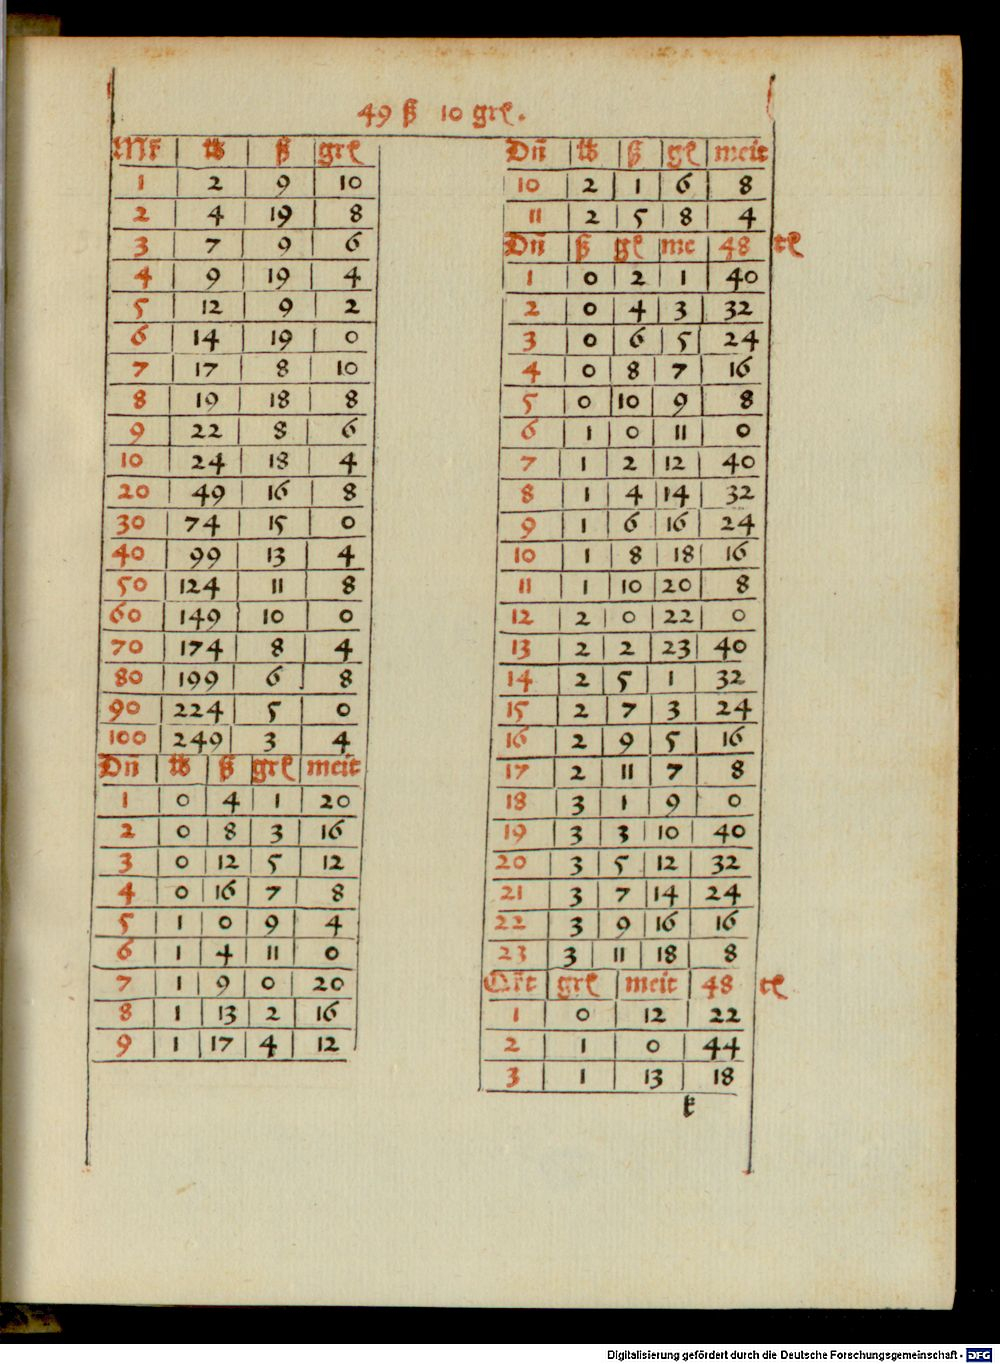 49 ß 10 grſ.
Mr̃ | lb | ß | grſ
1 | 2 | 9 | 10
2 | 4 | 19 | 8
3 | 7 | 9 | 6
4 | 9 | 19 | 4
5 | 12 | 9 | 2
6 | 14 | 19 | 0
7 | 17 | 8 | 10
8 | 19 | 18 | 8
9 | 22 | 8 | 6
10 | 24 | 18 | 4
20 | 49 | 16 | 8
30 | 74 | 15 | 0
40 | 99 | 13 | 4
50 | 124 | 11 | 8
60 | 149 | 10 | 0
70 | 174 | 8 | 4
80 | 199 | 6 | 8
90 | 224 | 5 | 0
100 | 249 | 3 | 4
Dñ | lb | ß | grſ | meit
1 | 0 | 4 | 1 | 20
2 | 0 | 8 | 3 | 16
3 | 0 | 12 | 5 | 12
4 | 0 | 16 | 7 | 8
5 | 1 | 0 | 9 | 4
6 | 1 | 4 | 11 | 0
7 | 1 | 9 | 0 | 20
8 | 1 | 13 | 2 | 16
9 | 1 | 17 | 4 | 12
Dñ | lb | ß | gſ | meit
10 | 2 | 1 | 6 | 8
11 | 2 | 5 | 8 | 4
Dñ | ß | gſ | me | 48 tſ
1 | 0 | 2 | 1 | 40
2 | 0 | 4 | 3 | 32
3 | 0 | 6 | 5 | 24
4 | 0 | 8 | 7 | 16
5 | 0 | 10 | 9 | 8
6 | 1 | 0 | 11 | 0
7 | 1 | 2 | 12 | 40
8 | 1 | 4 | 14 | 32
9 | 1 | 6 | 16 | 24
10 | 1 | 8 | 18 | 16
11 | 1 | 10 | 20 | 8
12 | 2 | 0 | 22 | 0
13 | 2 | 2 | 23 | 40
14 | 2 | 5 | 1 | 32
15 | 2 | 7 | 3 | 24
16 | 2 | 9 | 5 | 16
17 | 2 | 11 | 7 | 8
18 | 3 | 1 | 9 | 0
19 | 3 | 3 | 10 | 40
20 | 3 | 5 | 12 | 32
21 | 3 | 7 | 14 | 24
22 | 3 | 9 | 16 | 16
23 | 3 | 11 | 18 | 8
Qr̃t | grſ | meit | 48 tſ
1 | 0 | 12 | 22
2 | 1 | 0 | 44
3 | 1 | 13 | 18
k
Digitalisierung gefördert durch die Deutsche Forschungsgemeinschaft - DFG